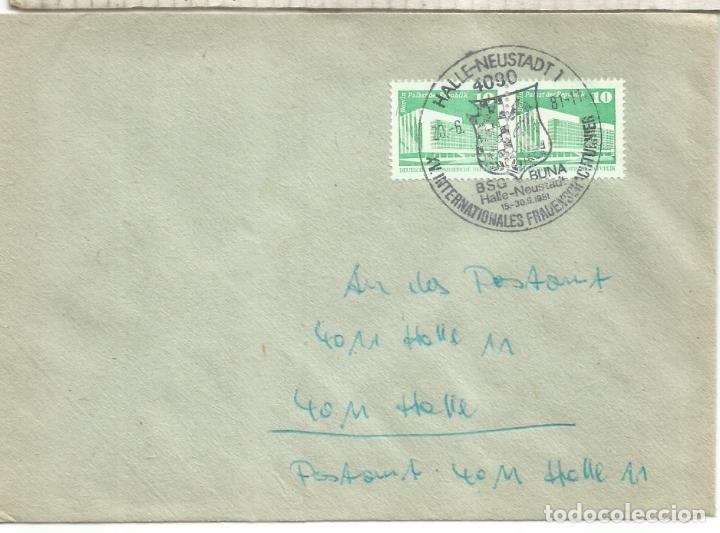 HALLE-NEUSTADT 1
4090
10
Berlin Palast der Republik
Berlin Palast der Republik 10
20.-6. 81-11
BSG BUNA
Halle-Neustadt
15.-30.6.1981
XV. INTERNATIONALES FRAUENSCHACHTURNIER
An das Postamt
4011 Halle 11
4011 Halle
Postamt 4011 Halle 11
todocoleccion
todocoleccion.net